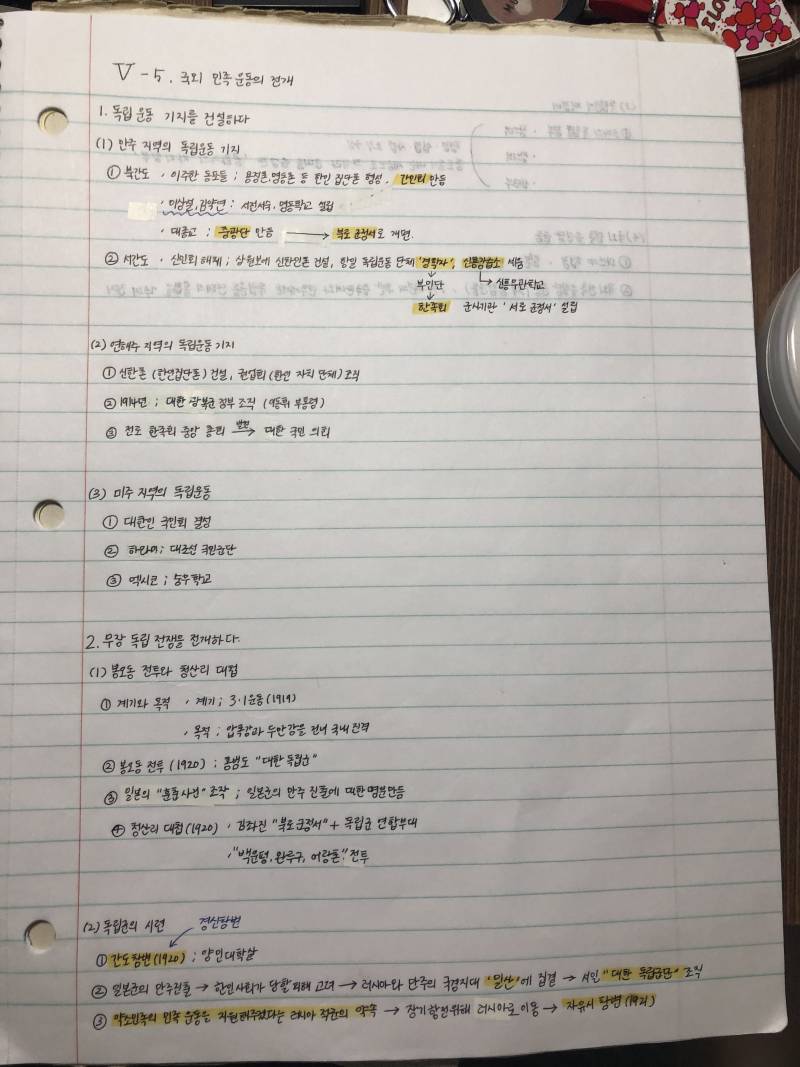 V-5. 국외 민족 운동의 전개
1. 독립 운동 기지를 건설하다
(1) 만주 지역의 독립운동 기지
① 북간도 · 이주한 동포들 ; 용정촌, 명동촌 등 한인 집단촌 형성. 간민회 만듬
· 이상설, 김약연 : 서전서숙, 명동학교 설립
· 대종교 ; 중광단 만듬 → 북로 군정서로 개편.
② 서간도 · 신민회 해체 ; 삼원보에 신한민촌 건설, 항일 독립운동 단체 '경학사', 신흥강습소 세움
부민단 신흥무관학교
한족회 군사기관 '서로 군정서' 설립
(2) 연해주 지역의 독립운동 기지
① 신한촌 (한인집단촌) 건설, 권업회 (한인 자치 단체) 조직
② 1914년 ; 대한 광복군 정부 조직 (이동휘 부통령)
③ 전로 한족회 중앙 총회 발전→ 대한 국민 의회
(3) 미주 지역의 독립운동
① 대한인 국민회 결성
② 하와이; 대조선 국민군단
③ 멕시코 ; 숭무학교
2. 무장 독립 전쟁을 전개하다.
(1) 봉오동 전투와 청산리 대첩
① 계기와 목적 · 계기 ; 3·1운동 (1919)
· 목적 ; 압록강과 두만강을 건너 국내 진격
② 봉오동 전투 (1920) ; 홍범도 "대한 독립군"
③ 일본의 "훈춘사건" 조작 ; 일본군의 만주 진출에 대한 명분만듬
④ 청산리 대첩 (1920) · 김좌진 "북로군정서" + 독립군 연합부대
· "백운평, 완루구, 어랑촌" 전투
(2) 독립군의 시련 경신참변
① 간도참변 (1920) ; 양민대학살
② 일본군의 만주진출 → 한인사회가 당할피해 고려 → 러시아와 만주의 국경지대 '밀산'에 집결 → 서일 "대한 독립군단" 조직
③ 약소민족의 민족 운동을 지원해주겠다는 러시아 적군의 약속 → 장기항전위해 러시아로 이동 → 자유시 참변 (1921)